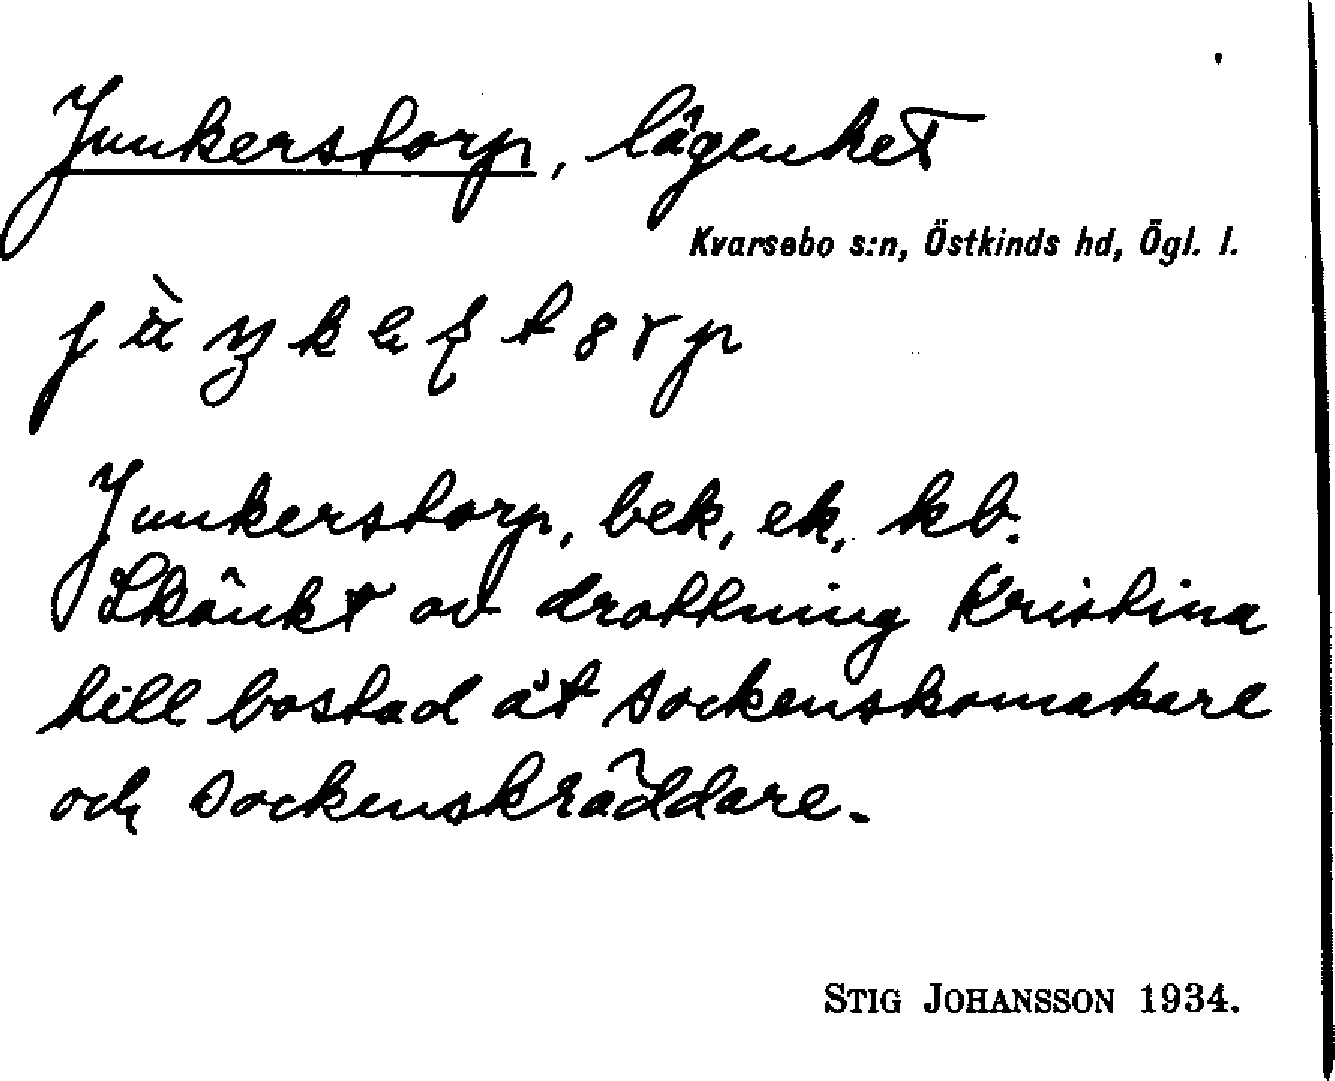 Junkerstorp, lägenhet
Kvarsebo s:n, Östkinds hd, Ögl. l.
Junkerstorp, bek, ek, kb.
Skänkt av drottning Kristina
till bostad åt sockenskomakare
och sockenskräddare.
STIG JOHANSSON 1934.